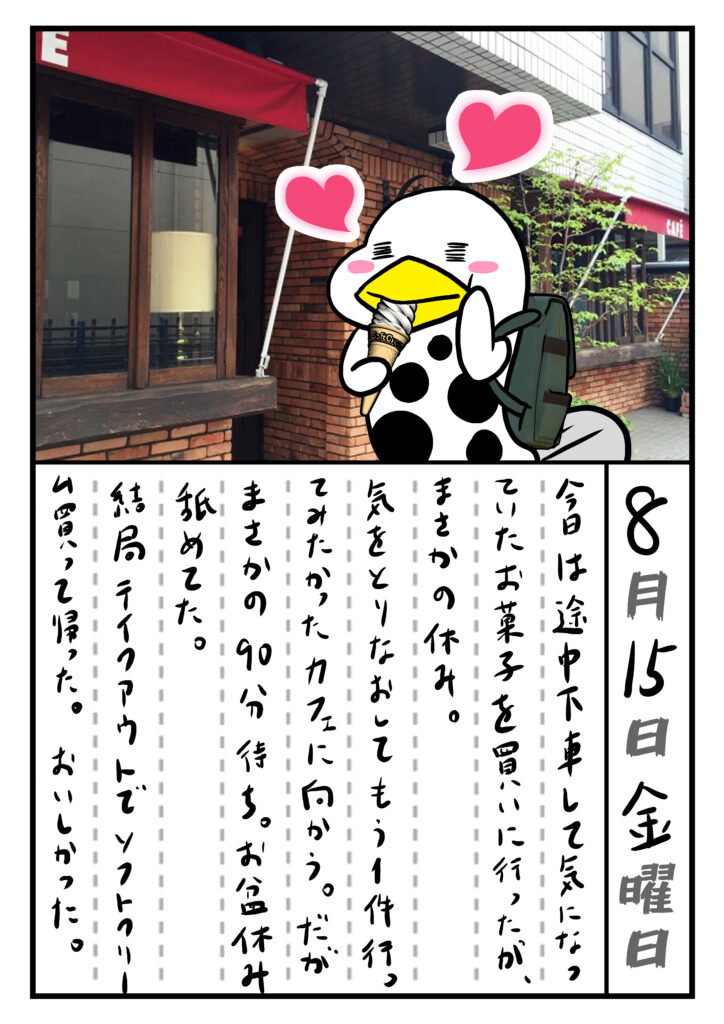 E
CAFÉ
8月15日金曜日
今日は途中下車して気になっ
ていたお菓子を買いに行ったが、
まさかの休み。
気をとりなおしてもう1件行っ
てみたかったカフェに向かう。だが
まさかの90分待ち。お盆休み
舐めてた。
結局テイクアウトでソフトクリー
ム買って帰った。おいしかった。